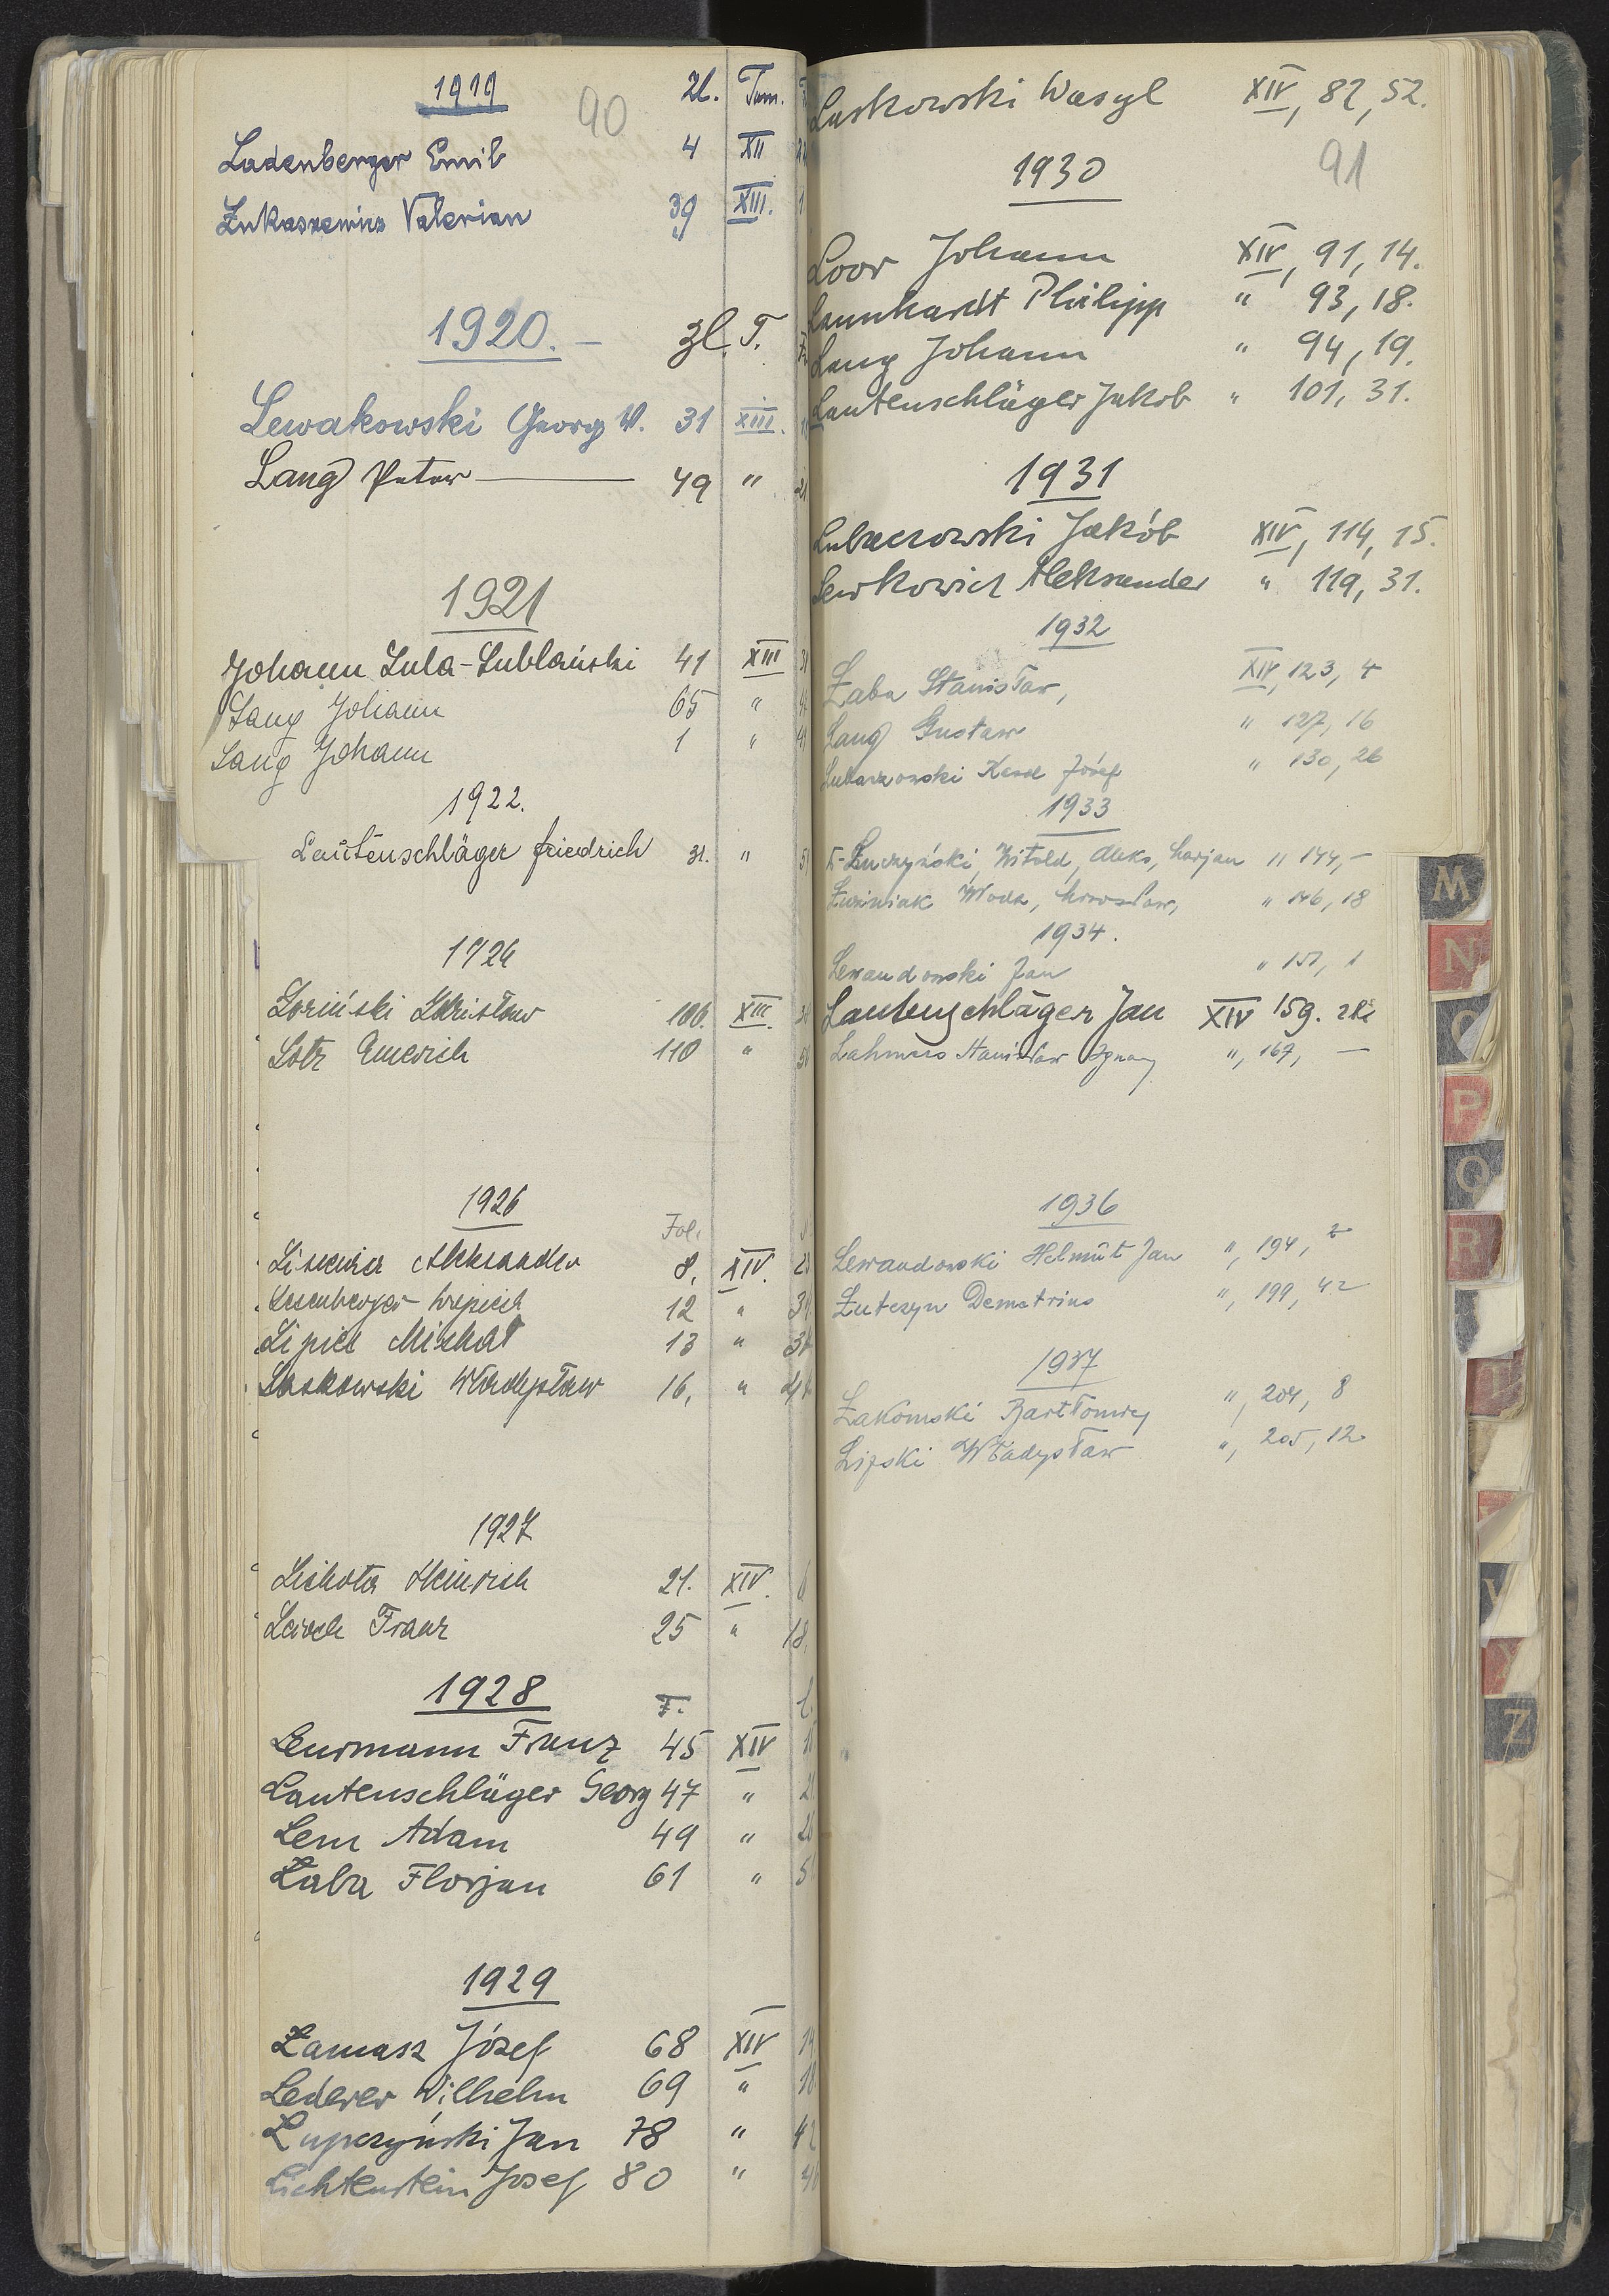 1919 90 Zl. Tom.
Ladenberger Emil 4 XII
Łukaszewicz Valerian 39 XIII.
1920. – Zl. T.
Lewakowski Georg W. 31 XIII.
Lang Peter 49 "
1921
Johann Lula-Lublański 41 XIII
Lang Johann 65 "
Lang Johann 1 "
1922.
Lautenschläger Friedrich 31. "
1924
Loriński 106. XIII.
Lotz Emerich 110 "
1926
Fol.
Aleksander 8, XIV.
12 "
Lipiec Michał 13 "
Laskowski Władysław 16, "
1927
Lichota Heinrich 21. XIV.
Franz 25 " 18.
1928 F.
Franz 45 XIV
Lautenschläger Georg 47 "
Lem Adam 49 "
Łaba Florjan 61 "
1929
Łamasz Józef 68 XIV
Lederer Wilhelm 69 "
Łupczyński Jan 78 "
Lichtenstein Josef 80 "
Laskowski Wasyl XIV, 82, 52.
91
1930
Loor Johann XIV, 91, 14.
Philipp " 93, 18.
Lang Johann " 94, 19.
Lautenschläger Jakob " 101, 31.
1931
Lubaczowski Jakób XIV, 114, 15.
Lewkowicz Aleksander " 119, 31.
1932
Łaba Stanisław, XIV, 123, 4
Lang Gustaw " 127, 16
Józef " 130, 26
1933
Witold, " 144, –
" 146, 18
1934.
Lewandowski Jan " 151, 1
Lautenschläger Jan XIV 159.
Stanisław Ignacy ", 167, —
1936
Lewandowski Helmut Jan ", 194, 2
Demetrius ", 199, 42
1937
Łakomski Bartłomiej ", 204, 8
Lipski Władysław ", 205, 12
M
N
O
P
Q
R
T
V
Z